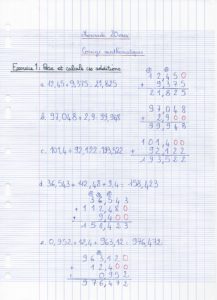 Mercredi 20 mai
Corrigé mathématiques
Exercice 1 : Pose et calcule ces additions
a. 12,45 + 9,375 = 21,825
12,450
+ 9,375
21,825
b. 97,048 + 2,9 = 99,948
97,048
+ 2,900
99,948
c. 101,4 + 92,122 = 193,522
101,400
+ 92,122
d. 36,543 + 112,48 + 9,4 = 158,423
36,543
+ 112,480
+ 9,400
158,423
e. 0,952 + 12,4 + 963,12 = 976,472
963,120
+ 12,400
+ 0,952
976,472